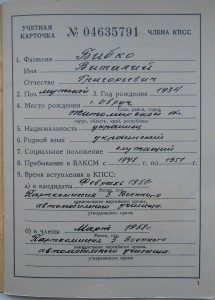 УЧЕТНАЯ КАРТОЧКА № 04635791 ЧЛЕНА КПСС
1. Фамилия Бибко
Имя Виталий
Отчество Григорьевич
2. Пол мужской 3. Год рождения 1934
4. Место рождения г. Овруч
Село, район, город,
Житомирской об.
край, область, край, республика
5. Национальность украинец
6. Родной язык украинский
7. Социальное положение служащий
8. Пребывание в ВЛКСМ с 1948 г. по 1958 г.
9. Время вступления в КПСС:
а) в кандидаты Февраль 1957
Парткомиссия 3 Военного
автомобильного училища.
утвердившего прием
б) в члены Март 1958
Парткомиссия 3 Военного
автомобильного училища.
утвердившего прием
1